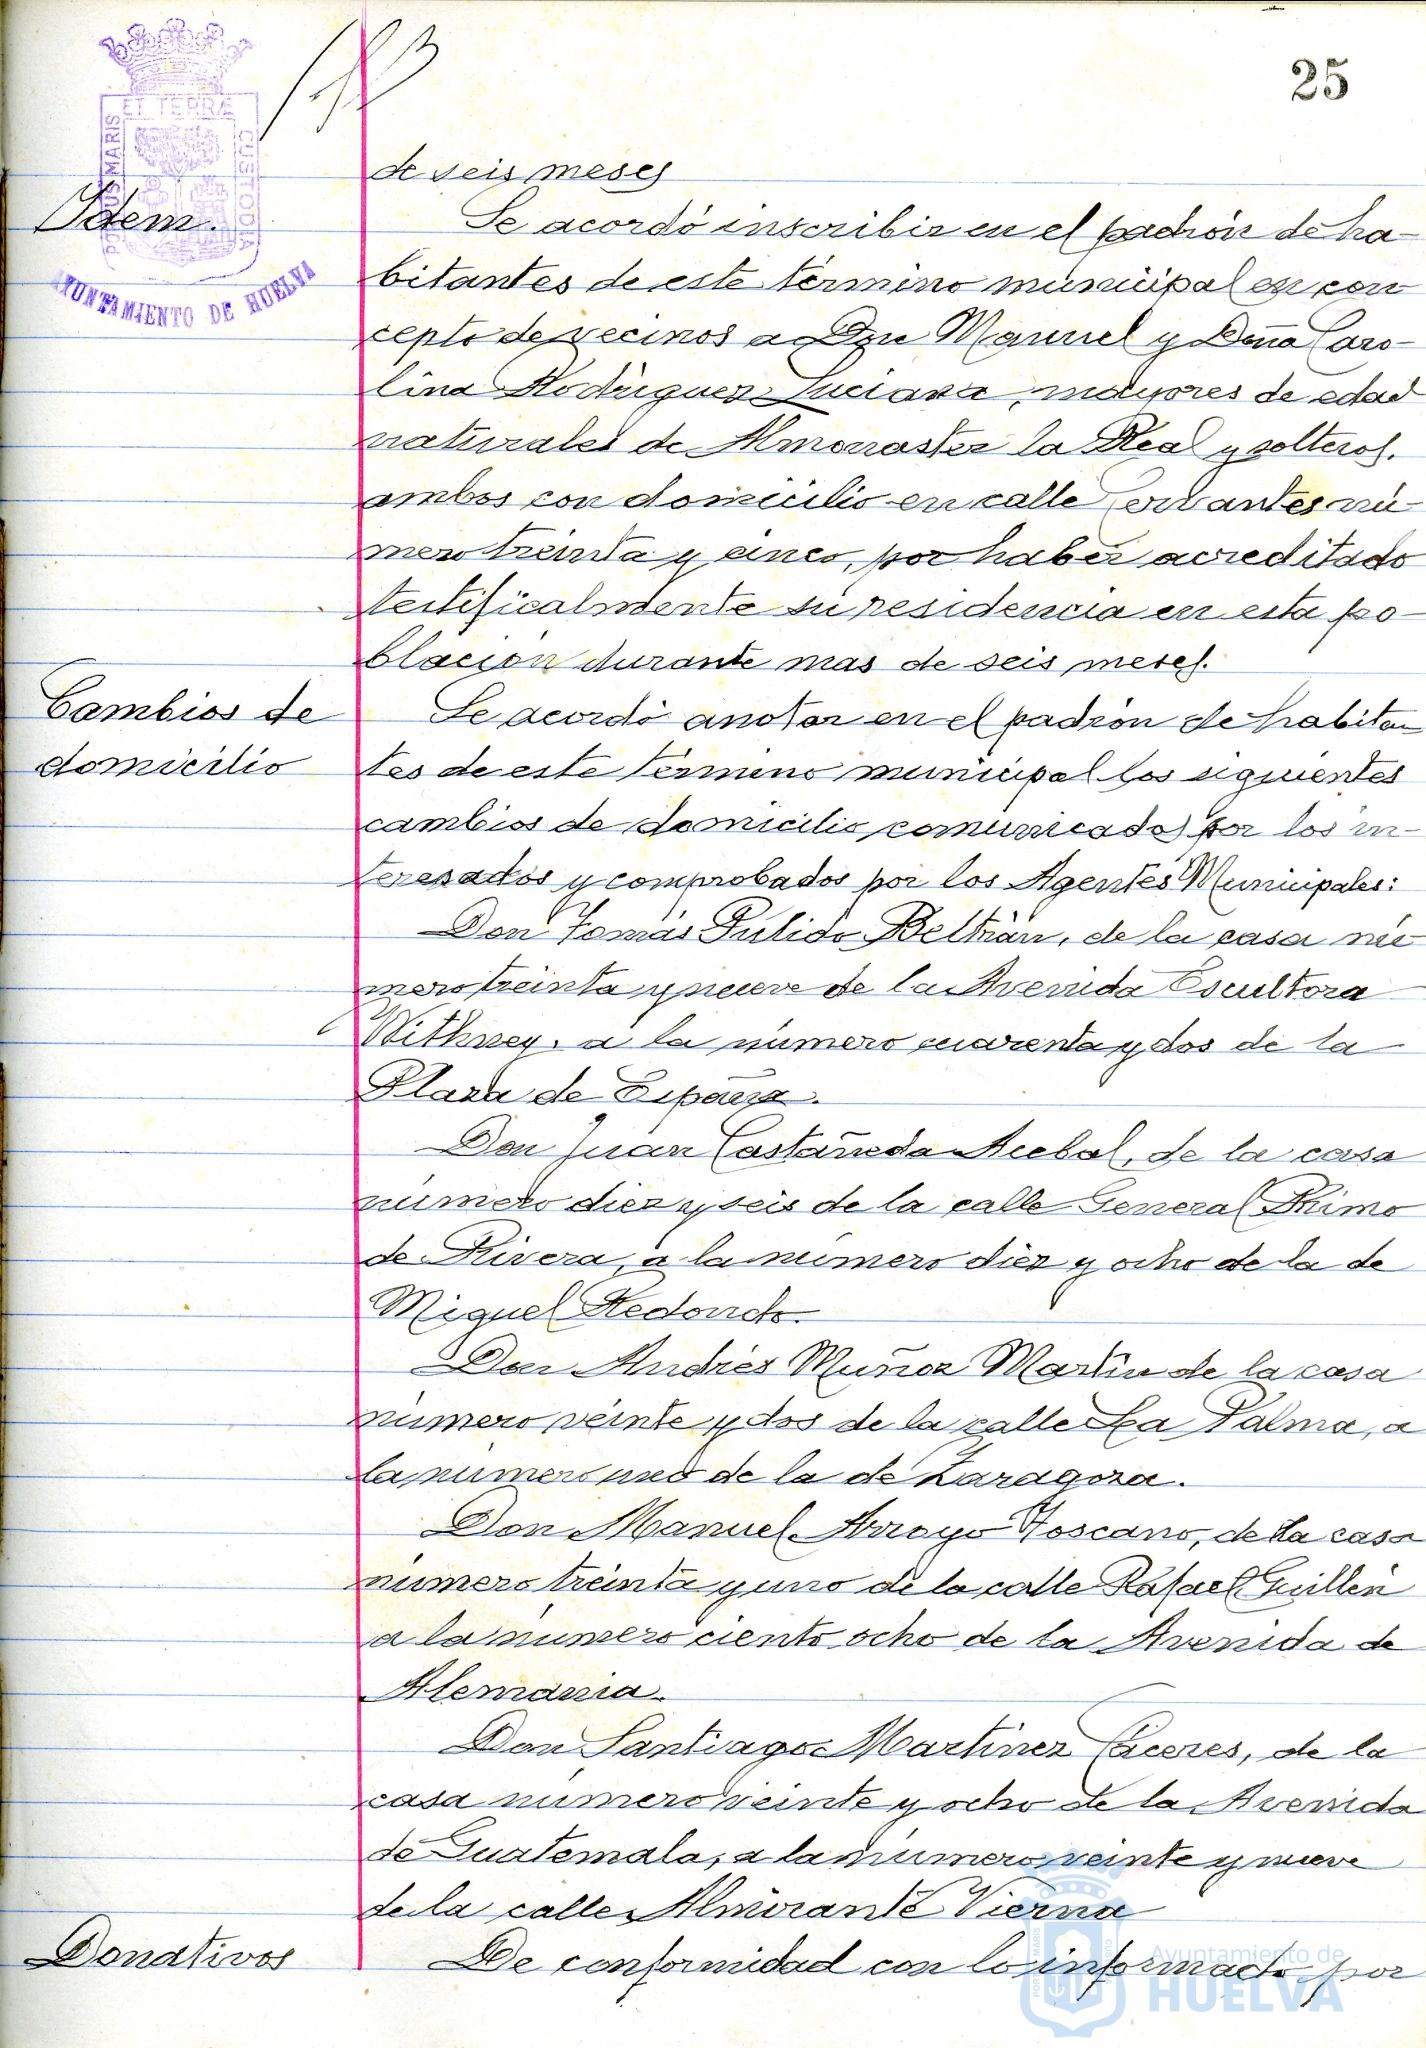 25
de seis meses
Idem.
Se acordó inscribir en el padrón de ha-
bitantes de este término municipal en con
cepto de vecinos a Don Manuel y Doña Caro-
lina Rodriguez Luciana, mayores de edad
naturales de Almonaster la Real y solteros.
ambos con domicilio en calle Cervantes nú-
mero treinta y cinco, por haber acreditado
testificalmente su residencia en esta po-
blación durante mas de seis meses.
Cambios de
domicilio
Se acordó anotar en el padrón de habitan
tes de este término municipal los siguientes
cambios de domicilio comunicados por los in-
teresados y comprobados por los Agentes Municipales:
Don Tomás Pulido Beltrán, de la casa nú
mero treinta y nueve de la Avenida Escultora
Withney, a la número cuarenta y dos de la
Plaza de España.
Don Juan Castañeda Acebal, de la casa
número diez y seis de la calle General Primo
de Rivera, a la número diez y ocho de la de
Miguel Redondo.
Don Andrés Muñoz Martín de la casa
número veinte y dos de la calle La Palma, a
la número uno de la de Zaragoza.
Don Manuel Arroyo Toscano, de la casa
número treinta y uno de la calle Rafael Guillén
a la número ciento ocho de la Avenida de
Alemania.
Don Santiago Martinez Cáceres, de la
casa número veinte y ocho de la Avenida
de Guatemala, a la número veinte y nueve
de la calle Almirante Vierna
Donativos
De conformidad con lo informado por
PORTUS MARIS ET TERRÆ CUSTODIA
AYUNTAMIENTO DE HUELVA
Ayuntamiento de
HUELVA